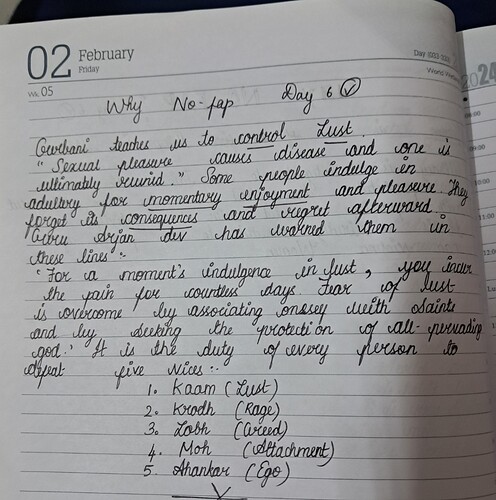 02 February
Friday
Wk. 05
Day (033-333)
2024
09:00
10:00
11:00
Why No-fap Day 6
Gurbani teaches us to control Lust
"Sexual pleasure causes disease and one is
ultimately ruined." Some people indulge in
adultery for momentary enjoyment and pleasure They
forget its consequences and regret afterward.
Guru Arjan dev has warned them in
these lines :-
"For a moment's indulgence in lust, you incur
the pain for countless days. Fear of lust
is overcome by associating oneself with saints
and by seeking the protection of all-pervading
god." It is the duty of every person to
defeat five vices :-
1. Kaam (Lust)
2. Krodh (Rage)
3. Lobh (Greed)
4. Moh (Attachment)
5. Ahankar (Ego)